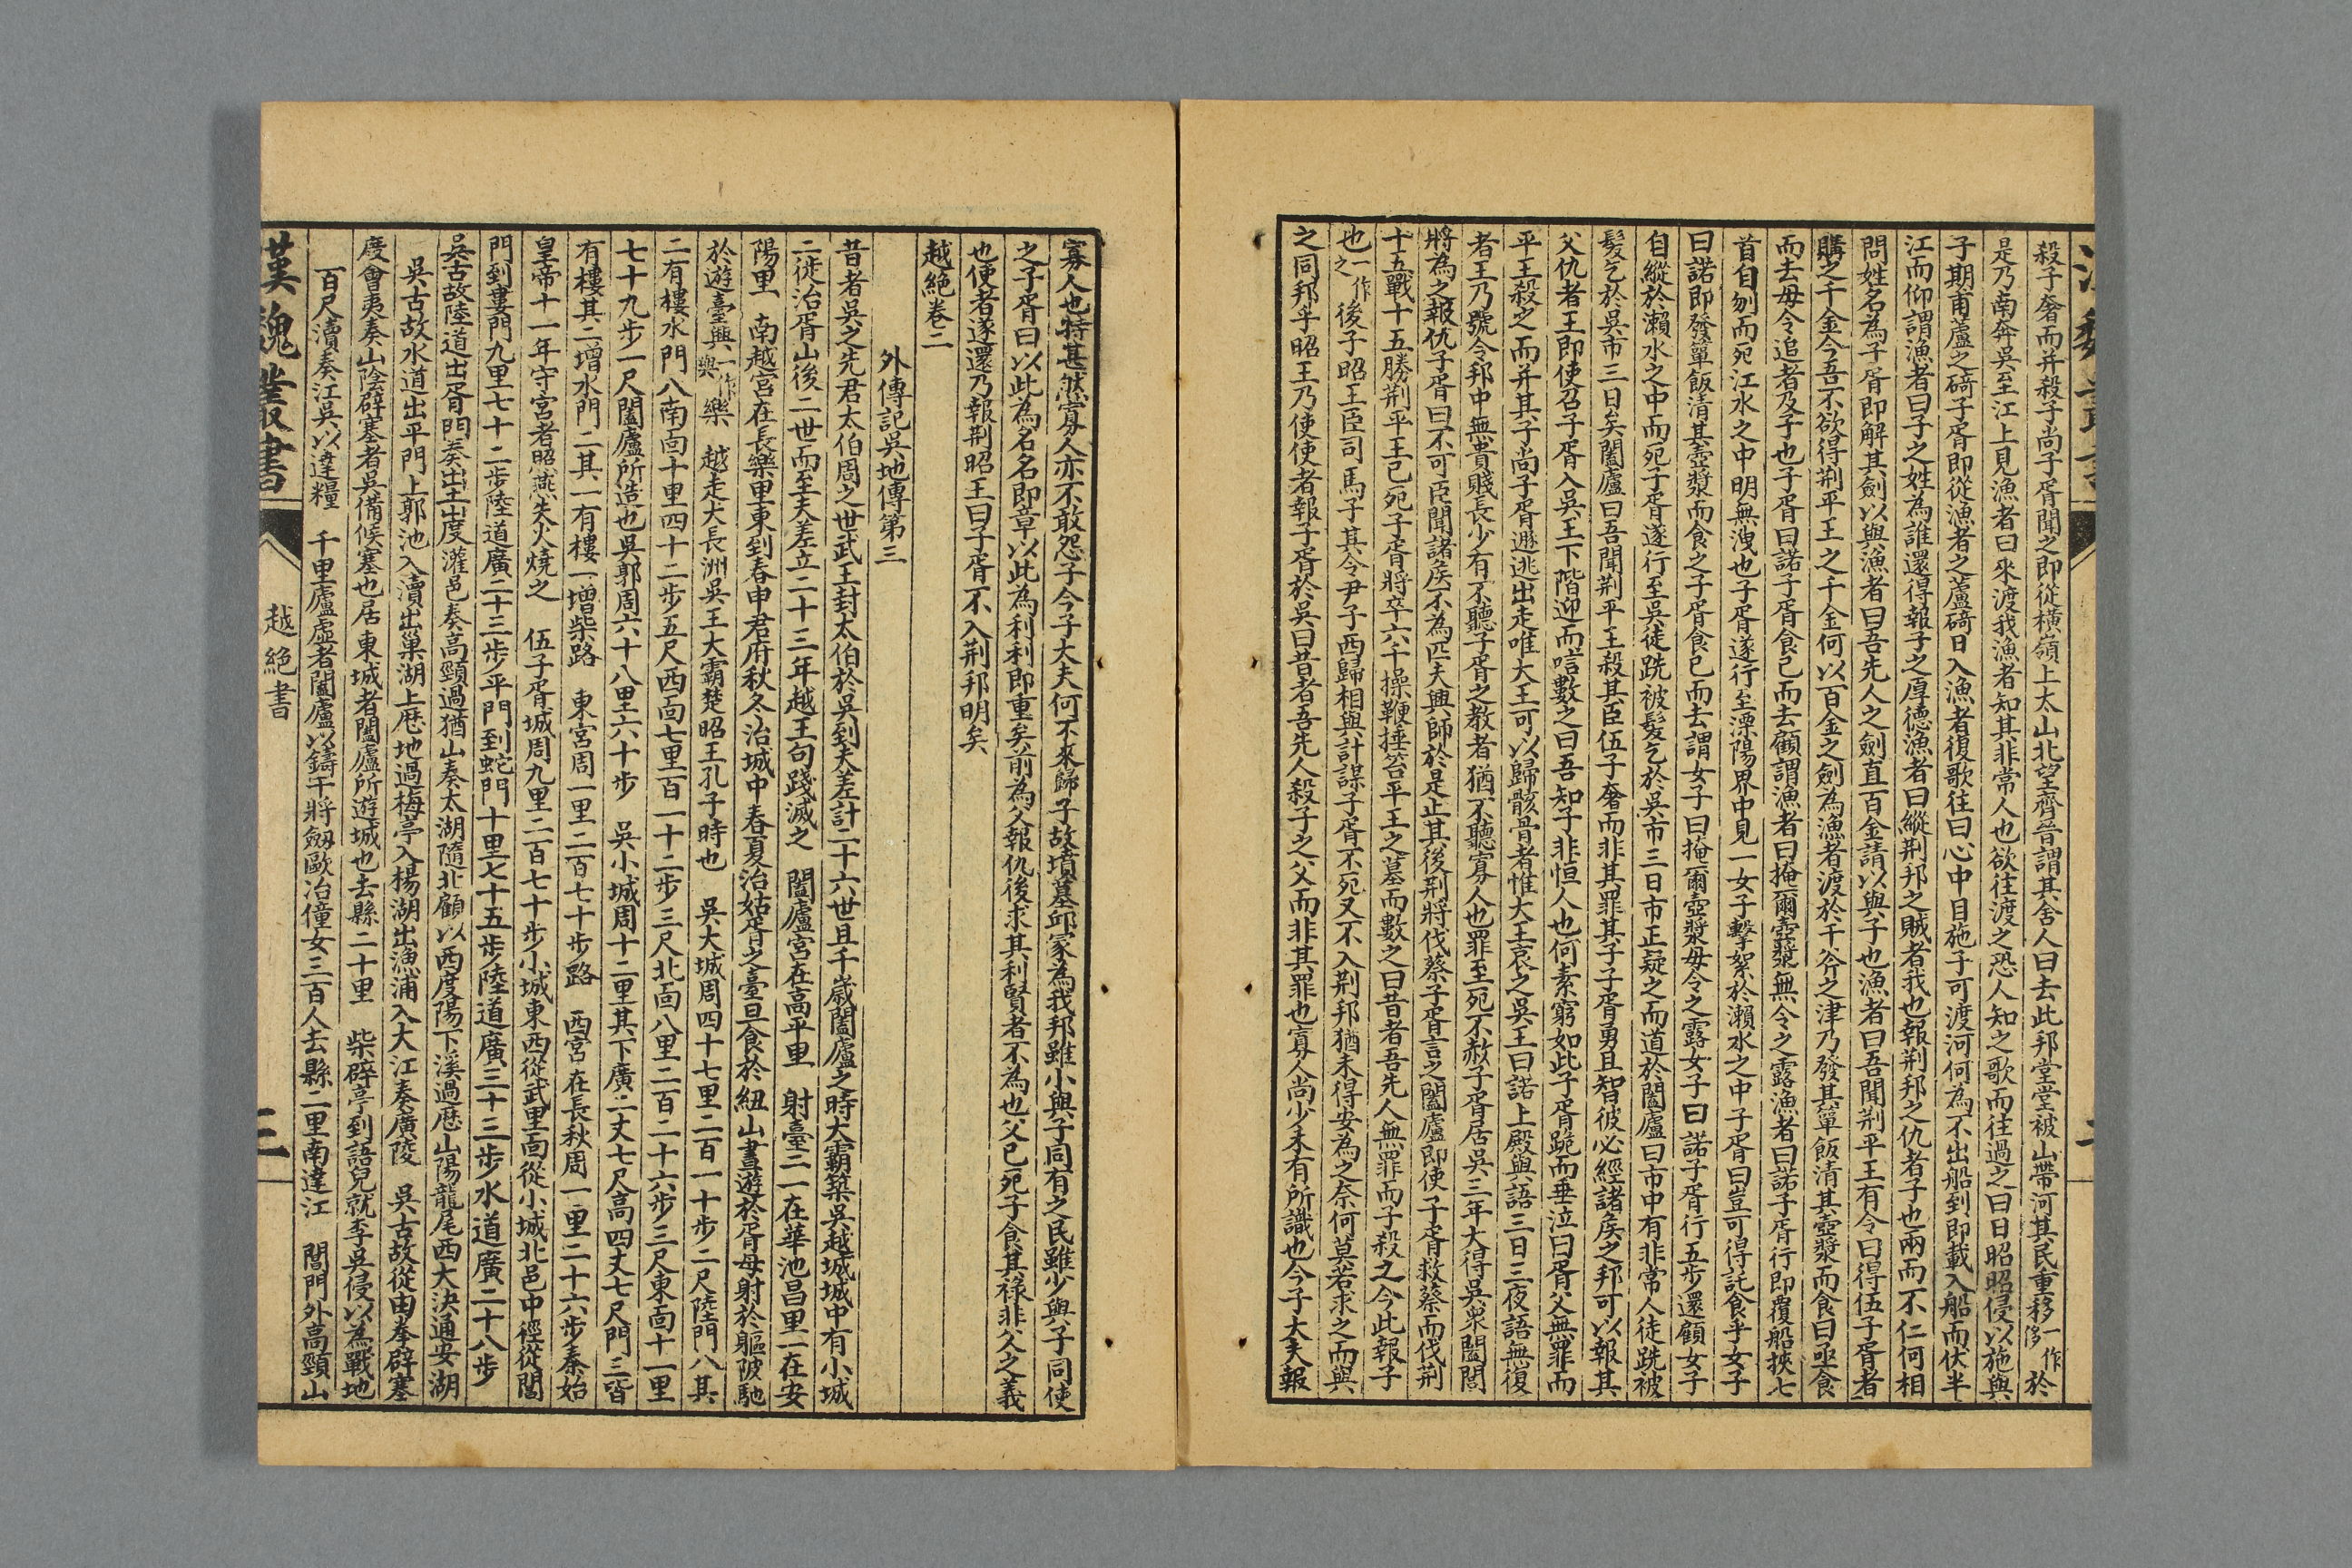 殺子奢而并殺子尚子胥聞之即從橫嶺上太山北望齊晉謂其舍人曰去此邦堂堂被山帶河其民重移一作侈於
是乃南奔吳至江上見漁者曰來渡我漁者知其非常人也欲往渡之恐人知之歌而往過之曰日昭昭侵以施與
子期甫蘆之碕子胥即從漁者之蘆碕日入漁者復歌往曰心中目施子可渡河何為不出船到即載入船而伏半
江而仰謂漁者曰子之姓為誰還得報子之厚德漁者曰縱荆邦之賊者我也報荆邦之仇者子也兩而不仁何相
問姓名為子胥即解其劍以與漁者曰吾先人之劍直百金請以與子也漁者曰吾聞荆平王有令曰得伍子胥者
購之千金今吾不欲得荆平王之千金何以百金之劍為漁者渡於于斧之津乃發其簞飯清其壺漿而食曰亟食
而去毋令追者及子也子胥曰諾子胥食已而去顧謂漁者曰掩爾壺漿無令之露漁者曰諾子胥行即覆船挾七
首自刎而死江水之中明無洩也子胥遂行至溧陽界中見一女子擊絮於瀨水之中子胥曰豈可得託食乎女子
曰諾即發簞飯清其壺漿而食之子胥食已而去謂女子曰掩爾壺漿毋令之露女子曰諾子胥行五步還顧女子
自縱於瀨水之中而死子胥遂行至吳徒跣被髮乞於吳市三日市正疑之而道於闔廬曰市中有非常人徒跣被
髮乞於吳市三日矣闔廬曰吾聞荆平王殺其臣伍子奢而非其罪其子子胥勇且智彼必經諸矦之邦可以報其
父仇者王即使召子胥入吳王下階迎而唁數之曰吾知子非恒人也何素窮如此子胥跪而垂泣曰胥父無罪而
平王殺之而并其子尚子胥遯逃出走唯大王可以歸骸骨者惟大王哀之吳王曰諾上殿與語三日三夜語無復
者王乃號令邦中無貴賤長少有不聽子胥之教者猶不聽寡人也罪至死不赦子胥居吳三年大得吳衆闔閭
將為之報仇子胥曰不可臣聞諸矦不為匹夫興師於是止其後荆將伐蔡子胥言之闔廬即使子胥救蔡而伐荆
十五戰十五勝荆平王已死子胥將卒六千操鞭捶笞平王之墓而數之曰昔者吾先人無罪而子殺之今此報子
也一作之後子昭王臣司馬子其令尹子西歸相與計謀子胥不死又不入荆邦猶未得安為之奈何莫若求之而與
之同邦乎昭王乃使使者報子胥於吳曰昔者吾先人殺子之父而非其罪也寡人尚少未有所識也今子大夫報
寡人也特甚然寡人亦不敢怨子今子大夫何不來歸子故墳墓邱冢為我邦雖小與子同有之民雖少與子同使
之子胥曰以此為名名即章以此為利利即重矣前為父報仇後求其利賢者不為也父已死子食其祿非父之義
也使者遂還乃報荆昭王曰子胥不入荆邦明矣
越絕卷二
外傳記吳地傳第三
昔者吳之先君太伯周之世武王封太伯於吳到夫差計二十六世且千歲闔廬之時大霸築吳越城城中有小城
二徙治胥山後二世而至夫差立二十三年越王句踐滅之　闔廬宮在高平里　射臺二一在華池昌里一在安
陽里　南越宮在長樂里東到春申君府秋冬治城中春夏治姑胥之臺旦食於紐山晝遊於胥母射於軀陂馳
於遊臺興一作與樂　越走犬長洲吳王大霸楚昭王孔子時也　吳大城周四十七里二百一十步二尺陸門八其
二有樓水門八南面十里四十二步五尺西面七里百一十二步三尺北面八里二百二十六步三尺東面十一里
七十九步一尺闔廬所造也吳郭周六十八里六十步　吳小城周十二里其下廣二丈七尺高四丈七尺門三皆
有樓其二增水門二其一有樓一增柴路　東宮周一里二百七十步路　西宮在長秋周一里二十六步秦始
皇帝十一年守宮者照燕失火燒之　伍子胥城周九里二百七十步小城東西從武里面從小城北邑中徑從閶
門到婁門九里七十二步陸道廣二十三步平門到蛇門十里七十五步陸道廣三十三步水道廣二十八步
吳古故陸道出胥門奏出土山度灌邑奏高頸過猶山奏太湖隨北顧以西度陽下溪過歷山陽龍尾西大決通安湖
吳古故水道出平門上郭池入瀆出巢湖上歷地過梅亭入楊湖出漁浦入大江奏廣陵　吳古故從由拳辟塞
度會夷奏山陰辟塞者吳備候塞也居東城者闔廬所遊城也去縣二十里　柴辟亭到語兒就李吳侵以為戰地
百尺瀆奏江吳以達糧　千里廬虛者闔廬以鑄干將劒歐冶僮女三百人去縣二里南達江　閶門外高頸山
漢魏叢書
越絕書
三